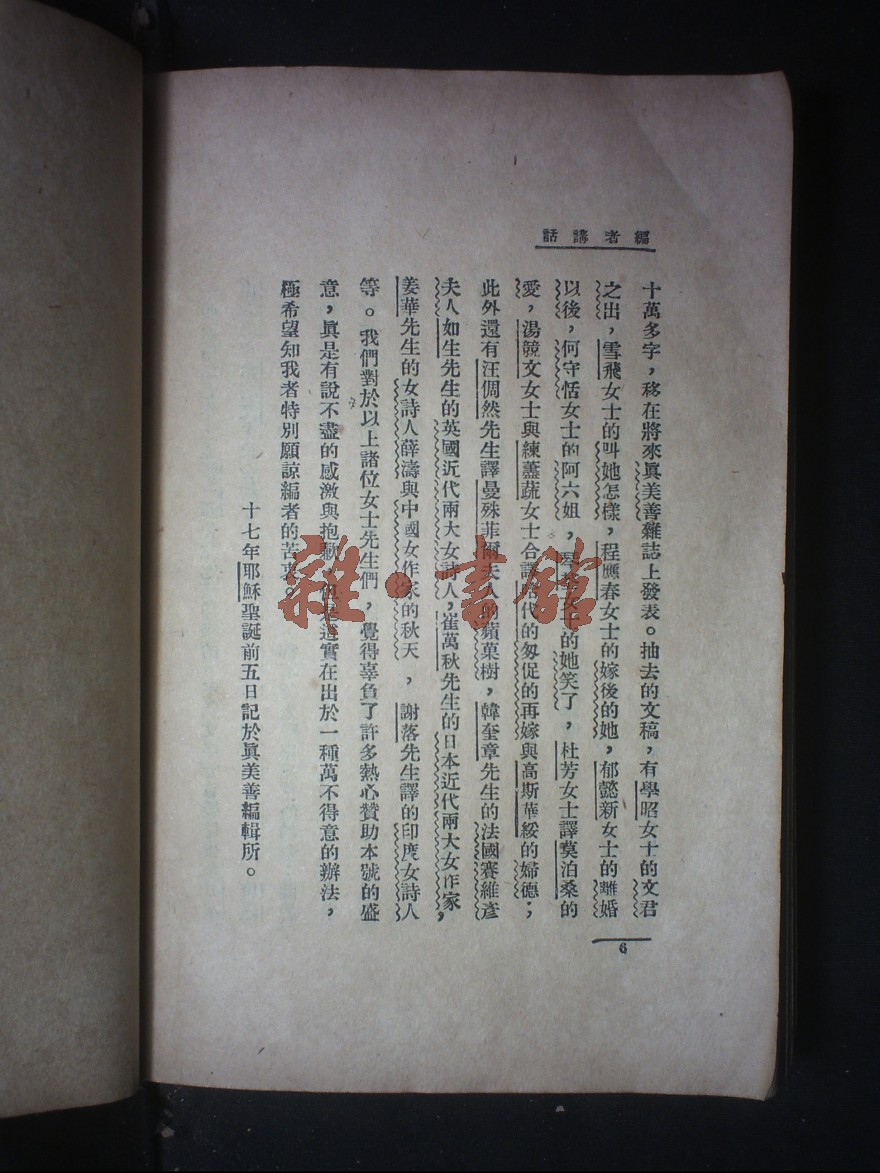 編者講話
十萬多字，移在將來眞美善雜誌上發表。抽去的文稿，有學昭女士的文君
之出，雪飛女士的叫她怎樣，程應春女士的嫁後的她，郁懿新女士的離婚
以後，何守恬女士的阿六姐，女士的她笑了，杜芳女士譯莫泊桑的
愛，湯競文女士與練薑蔬女士合譯代的匆促的再嫁與高斯華綏的婦德；
此外還有汪倜然先生譯曼殊菲爾夫人的蘋菓樹，韓奎章先生的法國賽維彥
夫人如生先生的英國近代兩大女詩人，崔萬秋先生的日本近代兩大女作家，
姜華先生的女詩人薛濤與中國女作家的秋天，謝落先生譯的印度女詩人
等。我們對於以上諸位女士先生們，覺得辜負了許多熱心贊助本號的盛
意，眞是有說不盡的感激與抱歉，但是這實在出於一種萬不得意的辦法，
極希望知我者特別願諒編者的苦衷。
十七年耶穌聖誕前五日記於眞美善編輯所。
6
雜·書館